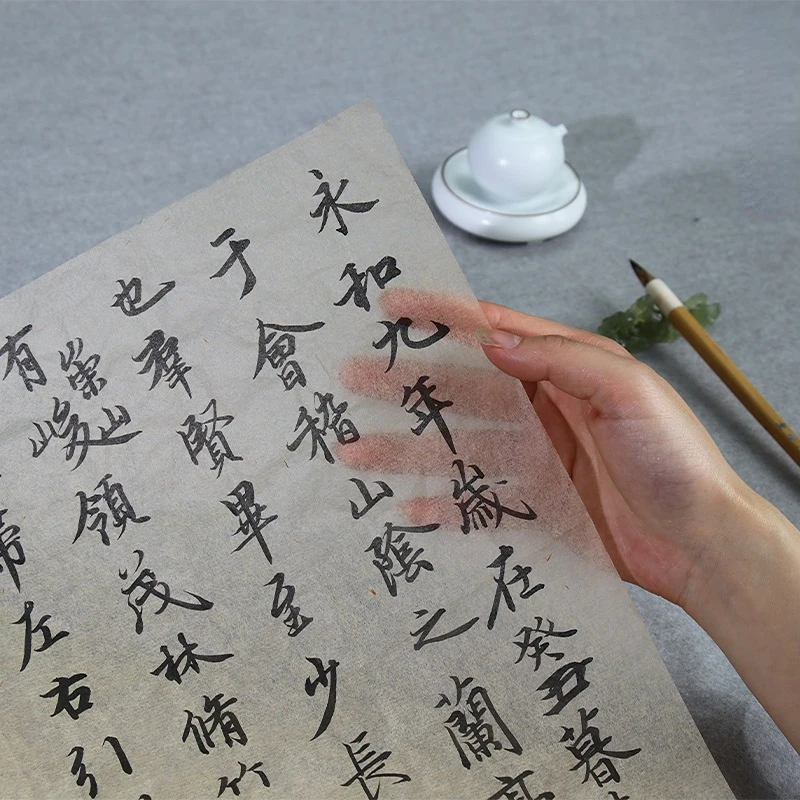 永和九年歲在癸丑暮
于會稽山陰之蘭亭
也羣賢畢至少長
有崇山峻領茂林脩竹
帶左右引